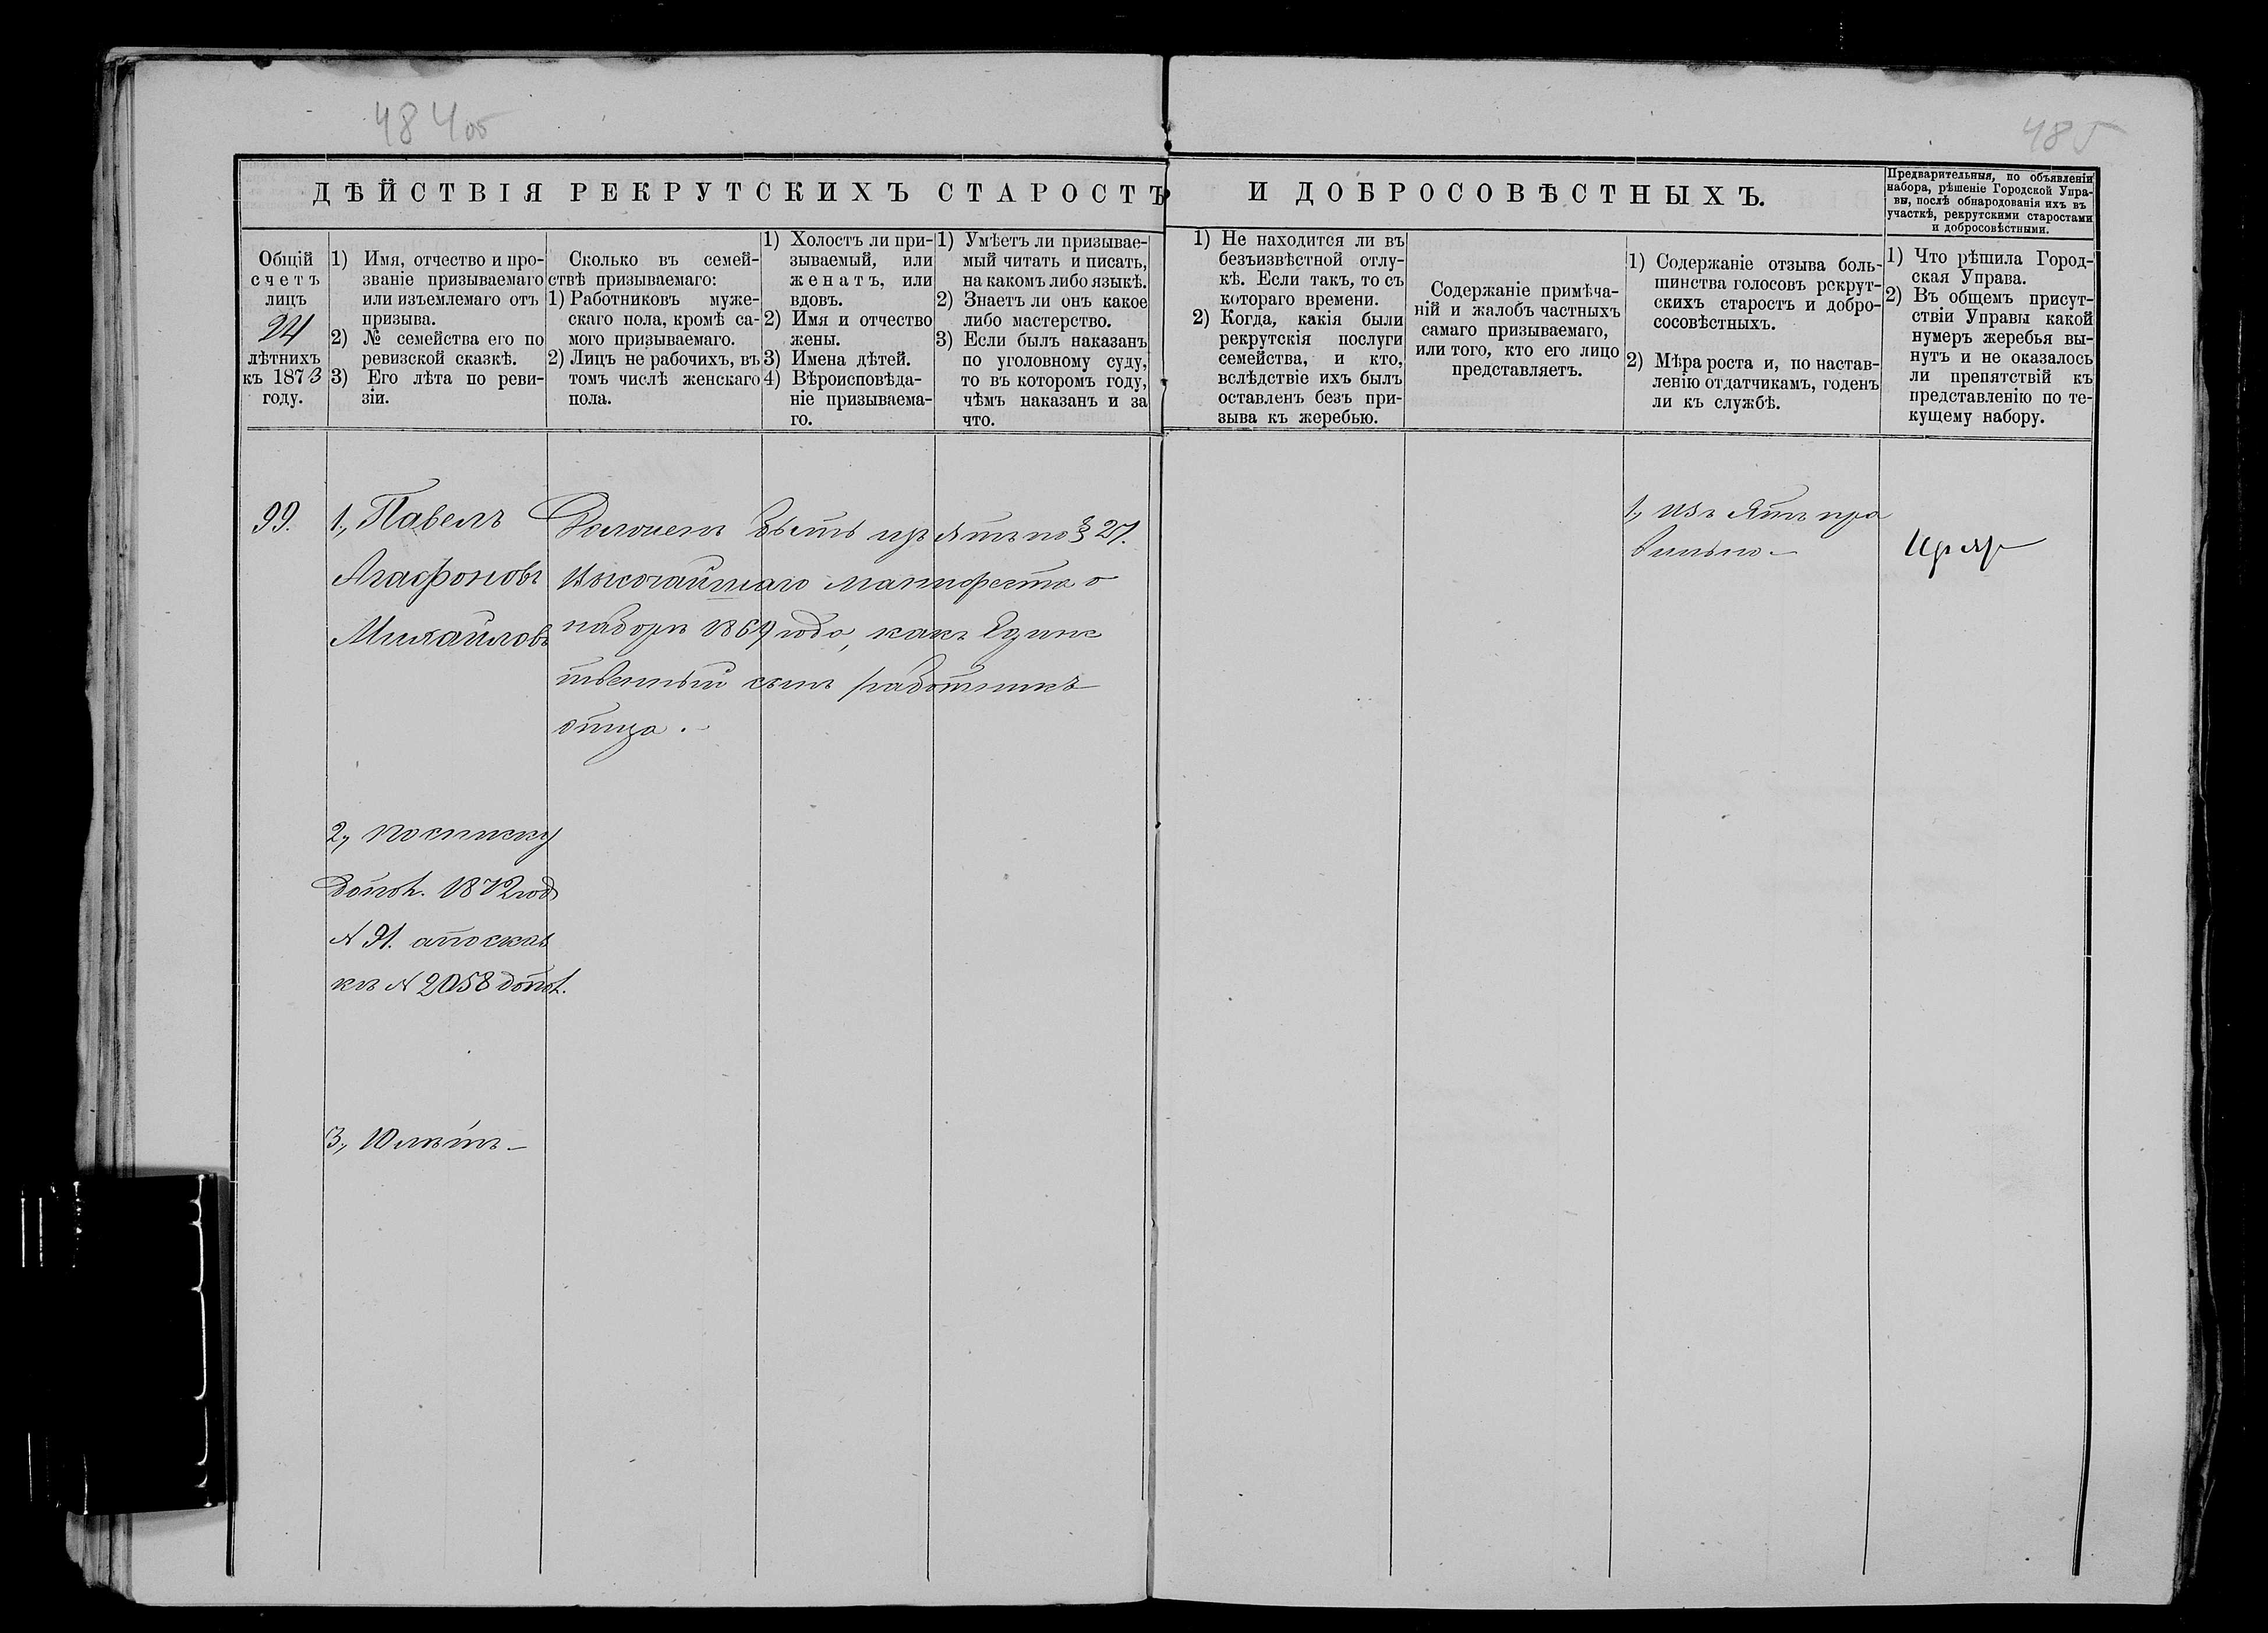 484 об
485
ДѢЙСТВІЯ РЕКРУТСКИХЪ СТАРОСТЪ И ДОБРОСОВѢСТНЫХЪ.
Предварительныя, по объявленіи
набора, рѣшеніе Городской Упра-
вы, послѣ обнародованія ихъ въ
участкѣ, рекрутскими старостами
и добросовѣстными.
Общій
счетъ
лицъ
21
лѣтнихъ
къ 1873
году.
1) Имя, отчество и про-
званіе призываемаго
или изъемлемаго отъ
призыва.
2) № семейства его по
ревизской сказкѣ.
3) Его лѣта по реви-
зіи.
Сколько въ семей-
ствѣ призываемаго:
1) Работниковъ муже-
скаго пола, кромѣ са-
мого призываемаго.
2) Лицъ не рабочихъ, въ
томъ числѣ женскаго
пола.
1) Холостъ ли при-
зываемый, или
женатъ, или
вдовъ.
2) Имя и отчество
жены.
3) Имена дѣтей.
4) Вѣроисповѣда-
ніе призываема-
го.
1) Умѣетъ ли призывае-
мый читать и писать,
на какомъ либо языкѣ.
2) Знаетъ ли онъ какое
либо мастерство.
3) Если былъ наказанъ
по уголовному суду,
то въ которомъ году,
чѣмъ наказанъ и за
что.
1) Не находится ли въ
безъизвѣстной отлу-
кѣ. Если такъ, то съ
котораго времени.
2) Когда, какія были
рекрутскія послуги
семейства, и кто,
вслѣдствіе ихъ былъ
оставленъ безъ при-
зыва къ жеребью.
Содержаніе примѣча-
ній и жалобъ частныхъ
самаго призываемаго,
или того, кто его лицо
представляетъ.
1) Содержаніе отзыва боль-
шинства голосовъ рекрут-
скихъ старостъ и добро-
сосовѣстныхъ.
2) Мѣра роста и, по настав-
ленію отдатчикамъ, годенъ
ли къ службѣ.
1) Что рѣшила Город-
ская Управа.
2) Въ общемъ присут-
ствіи Управы какой
нумеръ жеребья вы-
нутъ и не оказалось
ли препятствій къ
представленію по те-
кущему набору.
99.
1., Павелъ
Агафоновъ
Михайловъ
2., по списку
допол. 1872 год
№ 91. а по сказ
къ № 2058 допол.
3., 10 лѣтъ
Долженъ быть изъятъ по § 27.
Высочайшаго манифеста о
наборѣ 1869 года, какъ Единс
твенный сынъ работникъ
отца.
1., изъятъ пра
вильно